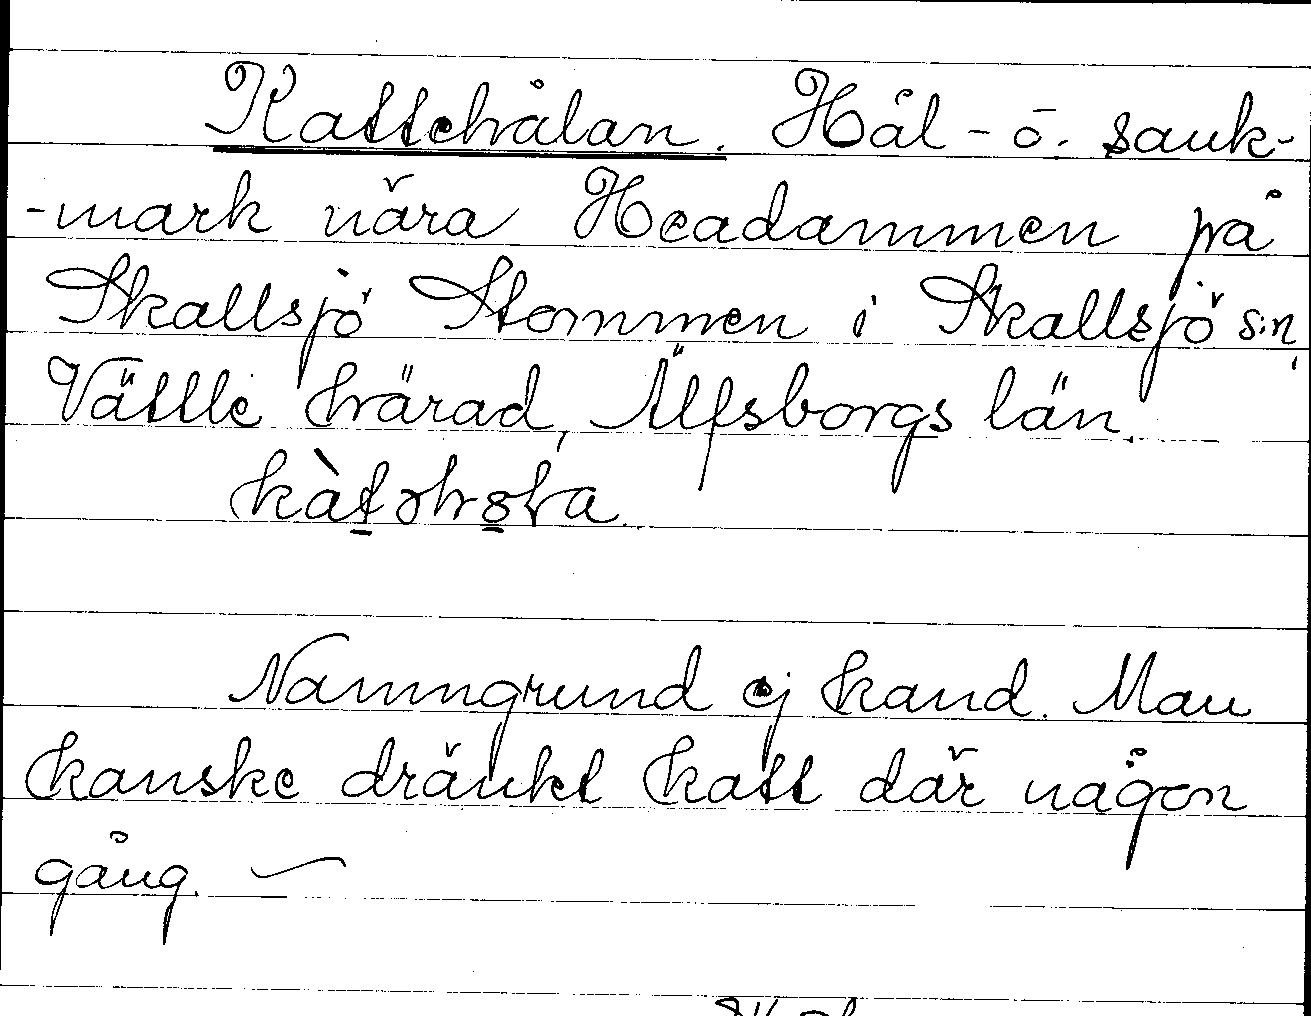 Kattehålan. Hål- o. sank-
-mark nära Headammen på
Skallsjö Stommen i Skallsjö s:n,
Vättle härad, Älfsborgs län.
Namngrund ej känd. Man
kanske dränkt katt där någon
gång. —